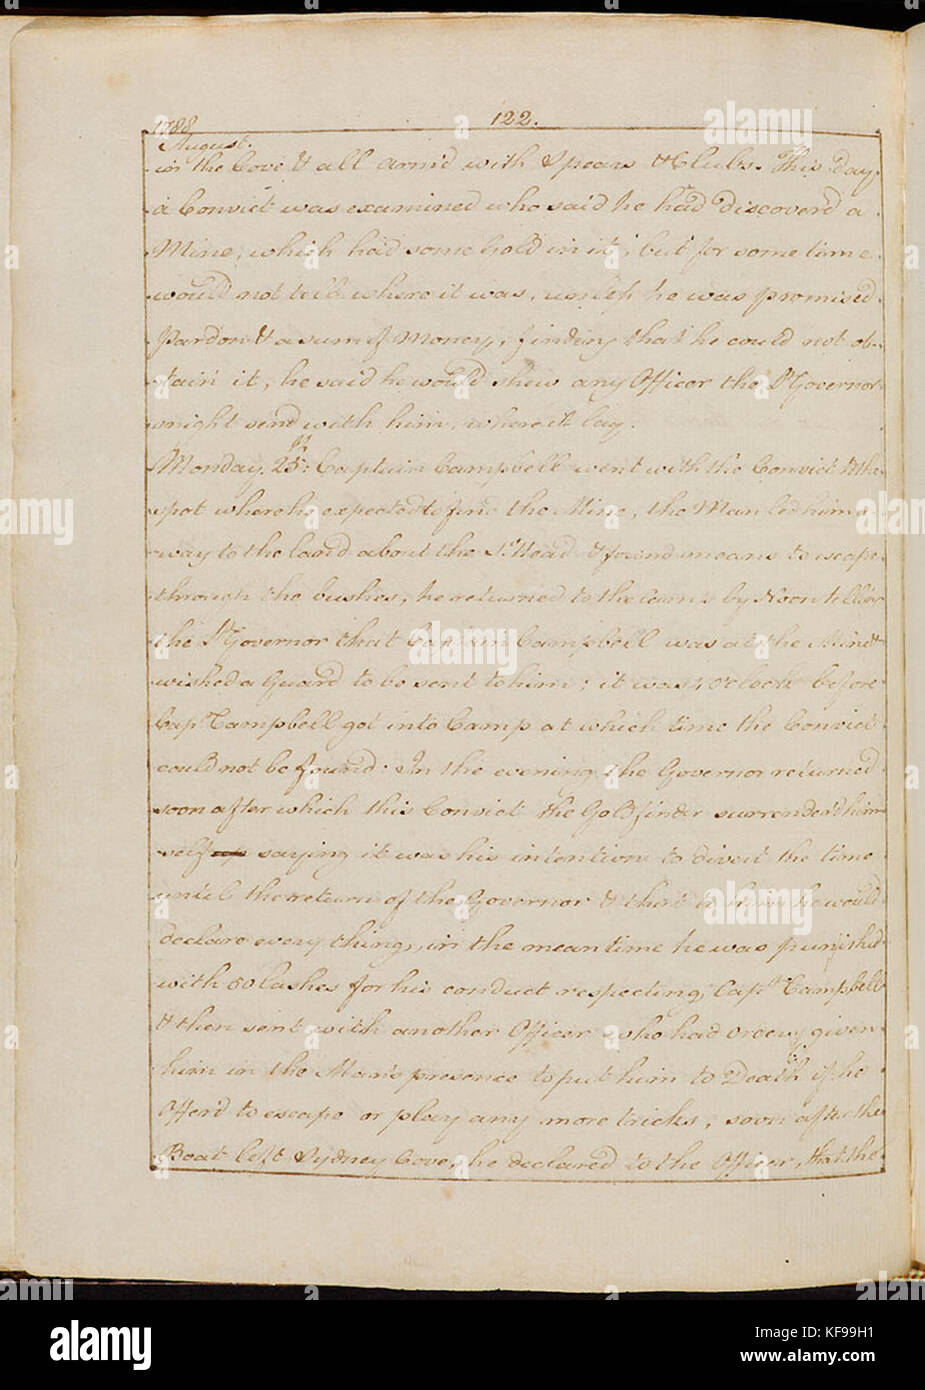 1788 122.
August.
in the Cove & all arm'd with Spears & Clubs. This day
a Convict was examined who said he had discover'd a
Mine, which had some Gold in it, but for some time
would not tell where it was, unless he was promised
Pardon & a sum of Money, finding that he could not ob-
tain it, he said he would shew any Officer the Lt Governor
might send with him, where it lay.
Monday, 25th: Captain Campbell went with the Convict to the
spot where he expected to find the Mine, the Man led him a
way to the land about the Head & found means to escape
through the bushes, he returned to the Camp by Noon telling
the Lt Governor that Captain Campbell was at the Mine &
wished a Guard to be sent to him; it was 4 o'Clock before
Capt Campbell got into Camp at which time the Convict
could not be found: In the evening the Governor returned
soon after which this Convict the Goldfinder surrender'd him-
self saying it was his intention to divert the time
until the return of the Governor & that to him he would
declare every thing, in the mean time he was punished
with 50 lashes for his conduct respecting Capt Campbell
& then sent with another Officer who had orders given
him in the Man's presence to put him to Death if he
Offer'd to escape or play any more tricks, soon after the
Boat left Sydney Cove, he declared to the Officer, that the
alamy
Image ID: KF99H1
www.alamy.com